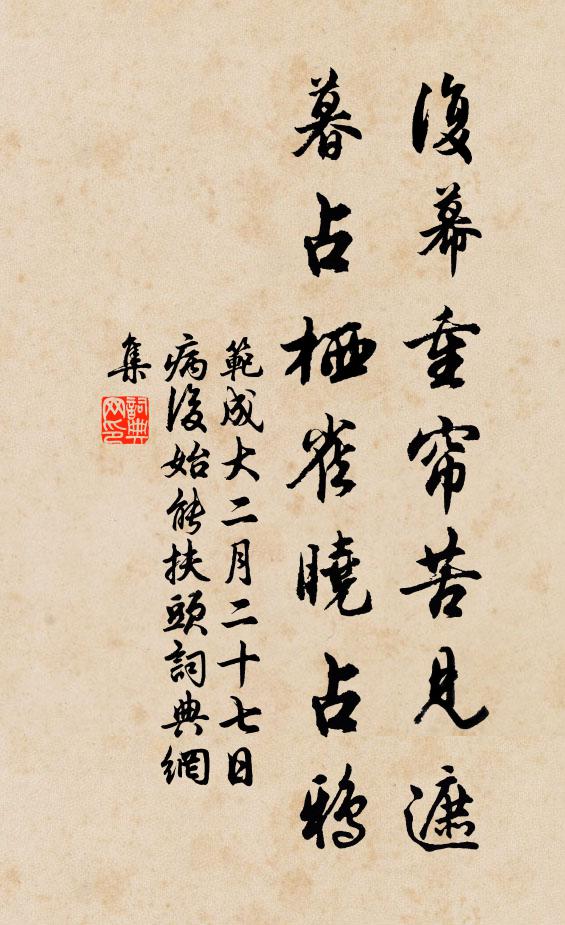 復幕重帘苦見遮
暮占栖雀曉占鴉
範成大二月二十七日
病後始能扶頭詞典網
集
詞典网印